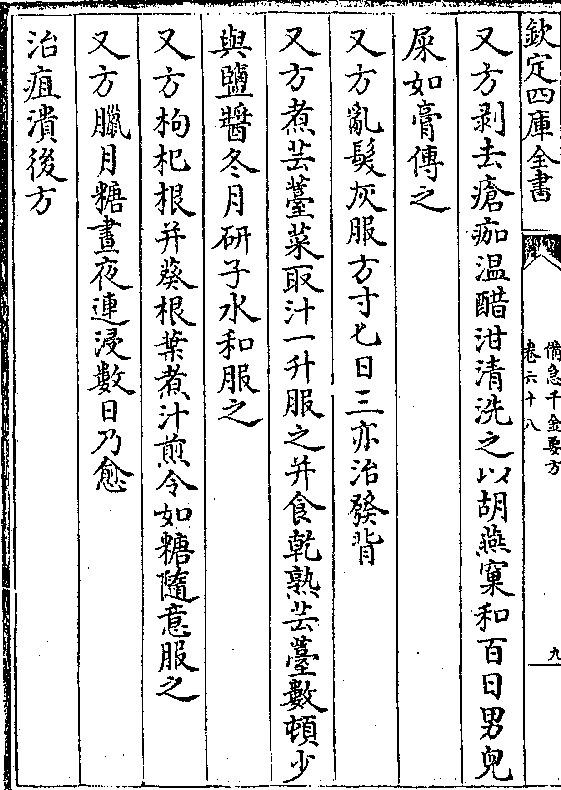 欽定四庫全書
備急千金要方
卷六十八
九
又方剥去瘡痂温醋泔清洗之以胡燕窠和百日男兒
屎如膏傅之
又方亂髮灰服方寸匕日三亦治發背
又方煮芸薹菜取汁一升服之并食乾熟芸薹數頓少
與鹽醬冬月研子水和服之
又方枸杞根并葵根葉煮汁煎令如糖隨意服之
又方臘月糖晝夜連浸數日乃愈
治疽潰後方